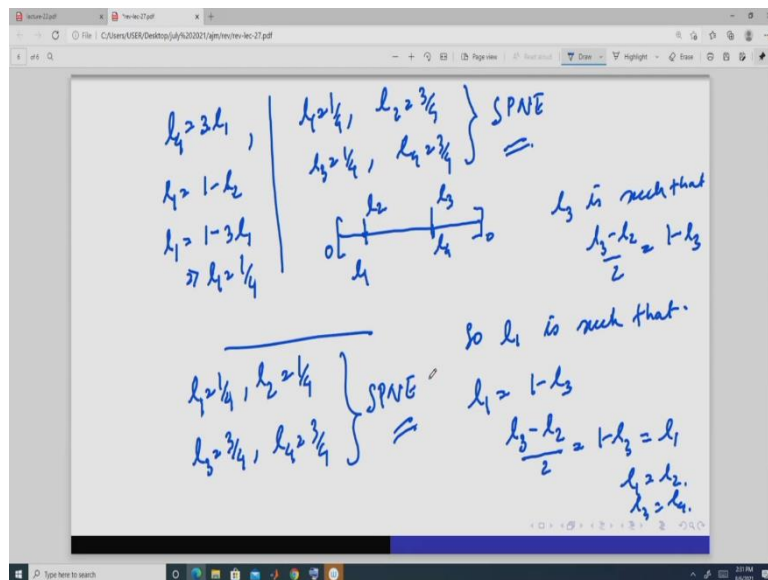 lecture-22.pdf
*rev-lec-27.pdf
File | C:/Users/USER/Desktop/july%202021/ajm/rev/rev-lec-27.pdf
6 of 6
Page view
Read aloud
Draw
Highlight
Erase
l₄ = 3l₁,
l₁ = 1 - l₂
l₁ = 1 - 3l₁
⇒ l₁ = 1/4
l₁ = 1/4, l₂ = 3/4
l₃ = 1/4, l₄ = 3/4
} SPNE
l₂ l₃
0 0
l₁ l₄
l₃ is such that
(l₃ - l₂)/2 = 1 - l₃
So l₁ is such that.
l₁ = 1 - l₃
(l₃ - l₂)/2 = 1 - l₃ = l₁
l₁ = l₂.
l₃ = l₄.
l₁ = 1/4, l₂ = 1/4
l₃ = 3/4, l₄ = 3/4
} SPNE
Type here to search
2:11 PM